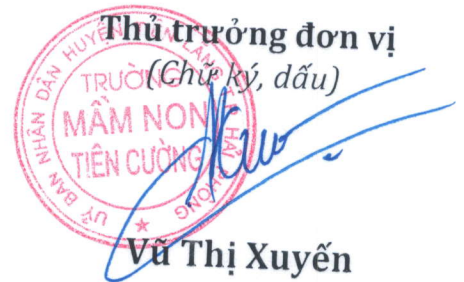 Thủ trưởng đơn vị
(Chữ ký, dấu)
ỦY BAN NHÂN DÂN HUYỆN TIÊN LÃNG T.P HẢI PHÒNG
TRƯỜNG
MẦM NON
TIÊN CƯỜNG
Vũ Thị Xuyến